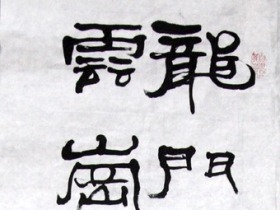 龍門
雲崗